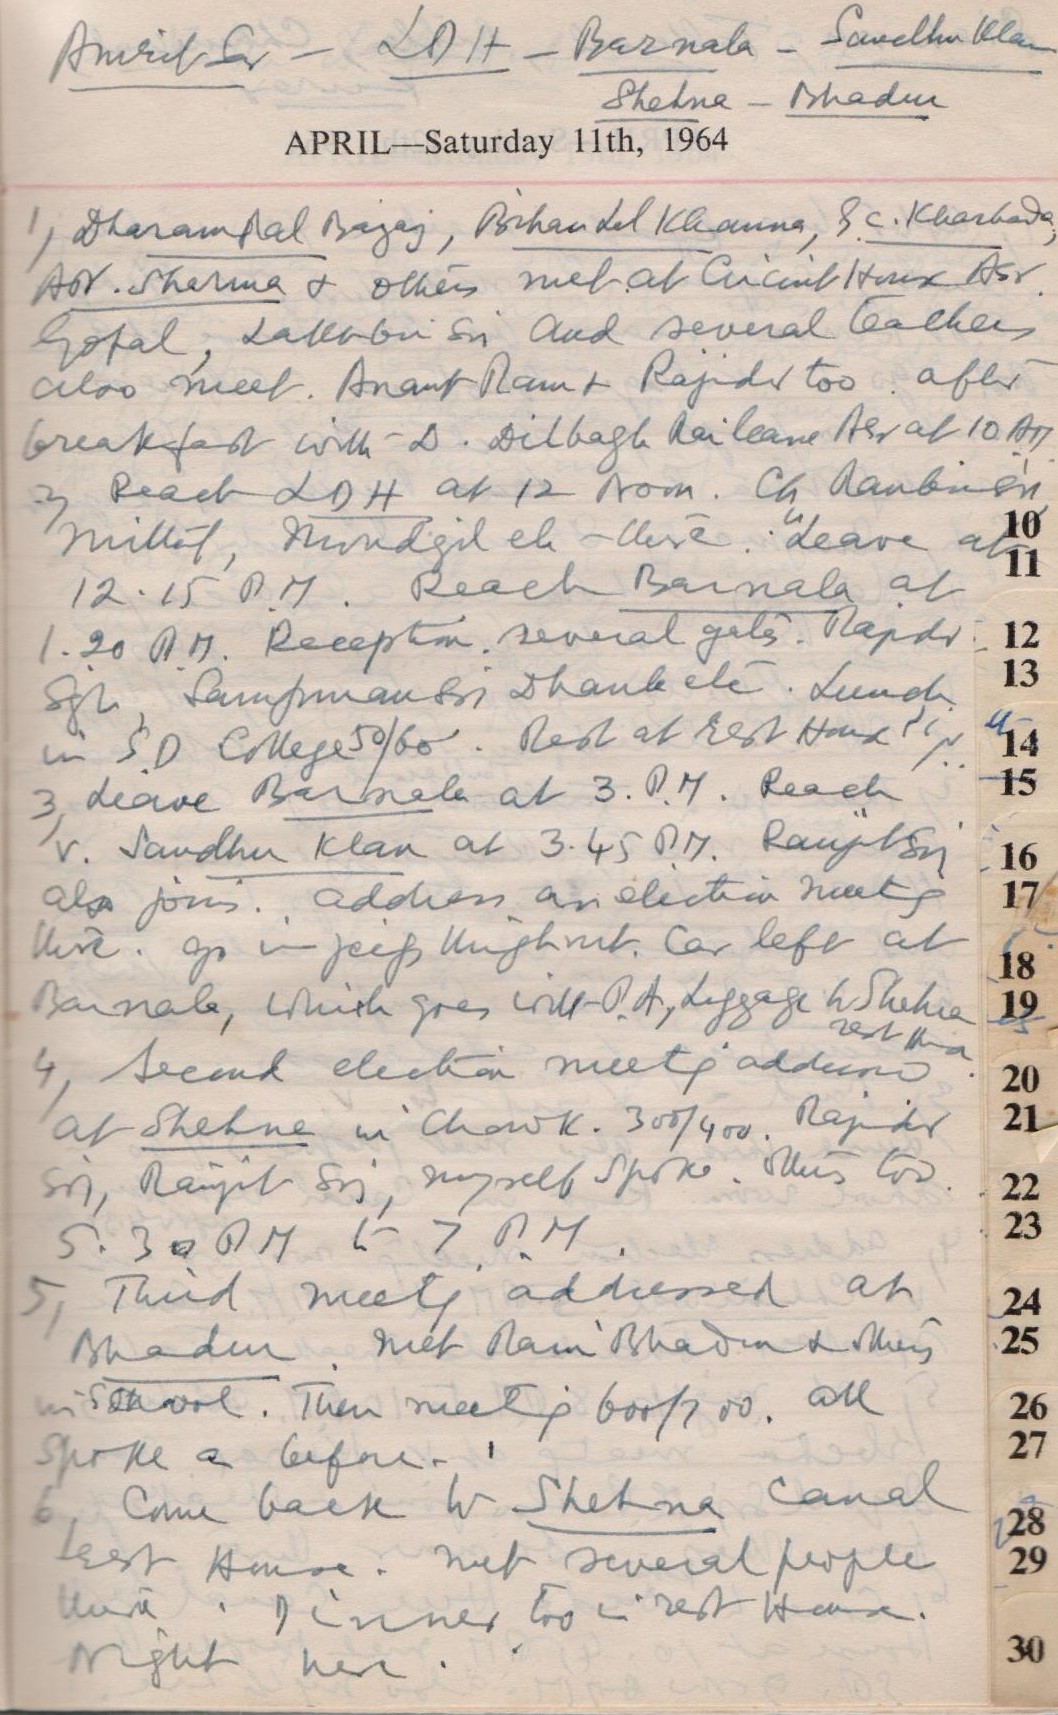 Amritsar - LDH - Barnala - Sandhu Klan
Shehna - Bhadur
APRIL—Saturday 11th, 1964
1, Dharampal Bajaj, Bihari Lal Khanna, S.C. Kharbada,
Sharma & others met at Circuit House Asr.
Gopal, Lakhbir Sn and several teachers
also meet. Anant Ram & Rajidr too. after
breakfast with D. Dilbagh Rai leave Asr at 10 AM
2, Reach LDH at 12 Noon. Ch Ranbir Sn
Mittal, Mundgil etc there. Leave at
12.15 P.M. Reach Barnala at
1.20 P.M. Reception. several gates. Rajidr
Sgh, Dhanla etc. Lunch
in S D College 50/60. Rest at Rest House
3, Leave Barnala at 3. P.M. Reach
v. Sandhu Klan at 3.45 P.M. Ranjit Snj
also joins. address an election meetg
there. go in jeeps throughout. Car left at
Barnala, which goes with P.A, Luggage to Shehna
rest House.
4, Second election meetg addressed
at Shehna in Chowk. 300/400. Rajidr
Snj, Ranjit Snj, myself spoke. Others too.
5.30 PM to 7 P.M.
5, Third meetg addressed at
Bhadur. Met Rani Bhadur & others
in School. Then meetig 600/700. all
spoke as before.
6, Come back to Shehna Canal
Rest House. met several people
there. Dinner too in rest House.
Night here.
10
11
12
13
14
15
16
17
18
19
20
21
22
23
24
25
26
27
28
29
30